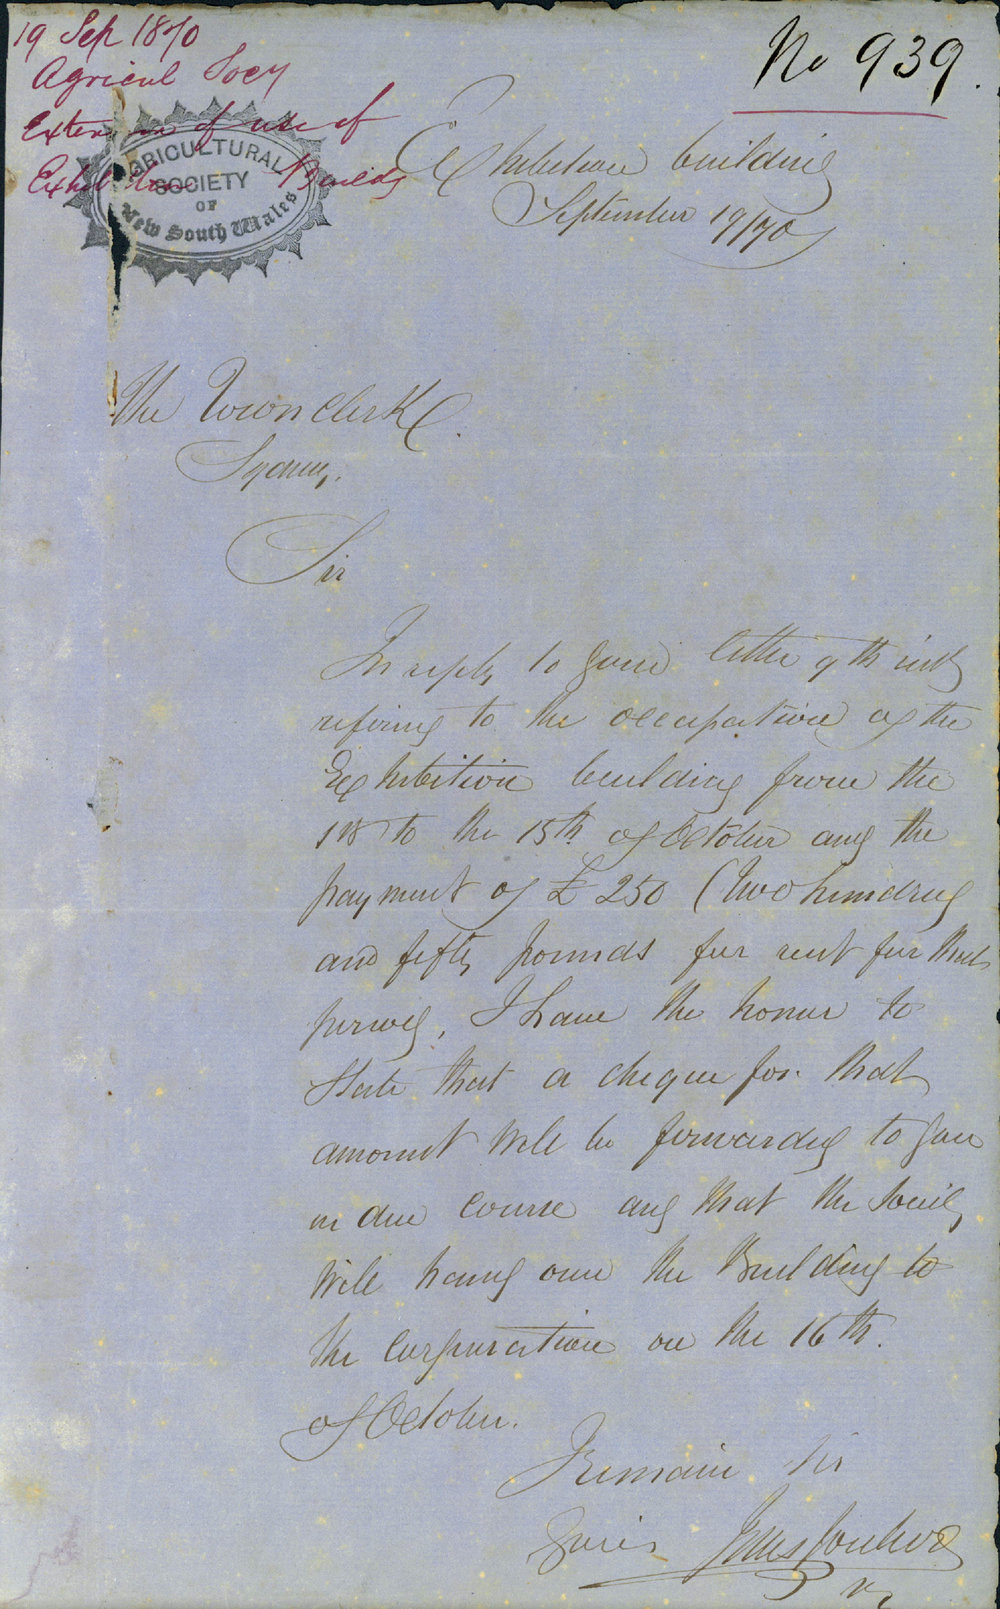 19 Sep 1870
Agricul Socy
Extension of use of
Exhibition Buildg
No 939.
AGRICULTURAL
SOCIETY
OF
New South Wales
Exhibition building
September 19/70
The Town Clerk
Sydney.
Sir
In reply to your letter 9th inst
refering to the occupation of the
Exhibition building from the
1st to the 15th of October and the
payment of £250 (Two hundred
and fifty pounds for rent for that
period, I have the honor to
state that a cheque for that
amount will be forwarded to you
in due course and that the Society
will hand over the Building to
the Corporation on the 16th.
of October.
I remain Sir
Yours Jules Joubert